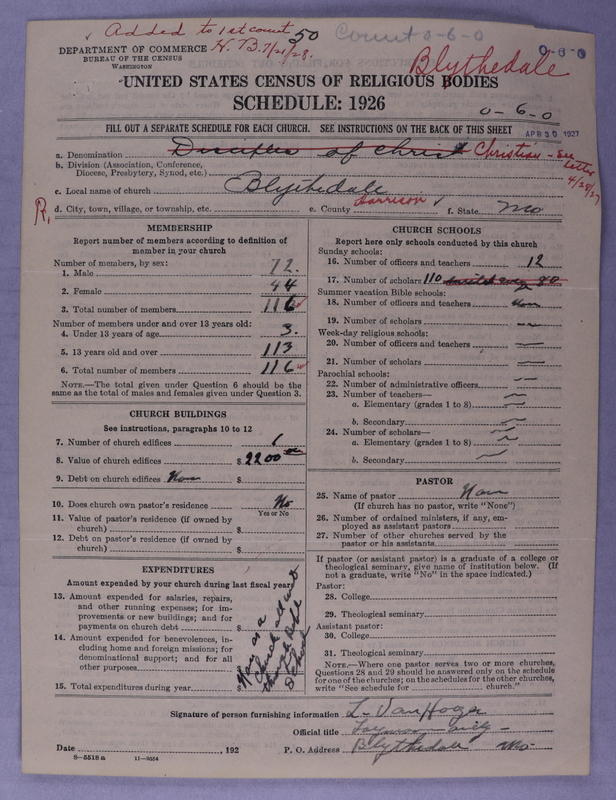 Added to 1st count 50 Count 0-6-0
H. B. 7/21/28.
DEPARTMENT OF COMMERCE
BUREAU OF THE CENSUS
WASHINGTON
Blythedale
0-6-0
UNITED STATES CENSUS OF RELIGIOUS BODIES
SCHEDULE: 1926
0-6-0
FILL OUT A SEPARATE SCHEDULE FOR EACH CHURCH. SEE INSTRUCTIONS ON THE BACK OF THIS SHEET
APR 30 1927
a. Denomination Disciples of Christ Christian - See letter 4/28/27
b. Division (Association, Conference, Diocese, Presbytery, Synod, etc.)
c. Local name of church Blythedale
R,
d. City, town, village, or township, etc. e. County Harrison f. State Mo
MEMBERSHIP
Report number of members according to definition of member in your church
Number of members, by sex:
1. Male 72.
2. Female 44
3. Total number of members 116
Number of members under and over 13 years old:
4. Under 13 years of age 3.
5. 13 years old and over 113
6. Total number of members 116
NOTE.—The total given under Question 6 should be the same as the total of males and females given under Question 3.
CHURCH BUILDINGS
See instructions, paragraphs 10 to 12
7. Number of church edifices 1
8. Value of church edifices $2200
9. Debt on church edifices None $
10. Does church own pastor's residence No
Yes or No
11. Value of pastor's residence (if owned by church) $
12. Debt on pastor's residence (if owned by church) $
EXPENDITURES
Amount expended by your church during last fiscal year
13. Amount expended for salaries, repairs, and other running expenses; for improvements or new buildings; and for payments on church debt $
14. Amount expended for benevolences, including home and foreign missions; for denominational support; and for all other purposes $
15. Total expenditures during year $
as a Church all went through Bible School
CHURCH SCHOOLS
Report here only schools conducted by this church
Sunday schools:
16. Number of officers and teachers 12
17. Number of scholars 110 80
Summer vacation Bible schools:
18. Number of officers and teachers None
19. Number of scholars
Week-day religious schools:
20. Number of officers and teachers
21. Number of scholars
Parochial schools:
22. Number of administrative officers
23. Number of teachers—
a. Elementary (grades 1 to 8)
b. Secondary
24. Number of scholars—
a. Elementary (grades 1 to 8)
b. Secondary
PASTOR
25. Name of pastor None
(If church has no pastor, write "None")
26. Number of ordained ministers, if any, employed as assistant pastors
27. Number of other churches served by the pastor or his assistants
If pastor (or assistant pastor) is a graduate of a college or theological seminary, give name of institution below. (If not a graduate, write "No" in the space indicated.)
Pastor:
28. College
29. Theological seminary
Assistant pastor:
30. College
31. Theological seminary
NOTE.—Where one pastor serves two or more churches, Questions 28 and 29 should be answered only on the schedule for one of the churches; on the schedules for the other churches, write "See schedule for church."
Signature of person furnishing information L. VanHoozer
Official title
Date , 192 P. O. Address Blythedale Mo
8—5518 a 11—9554